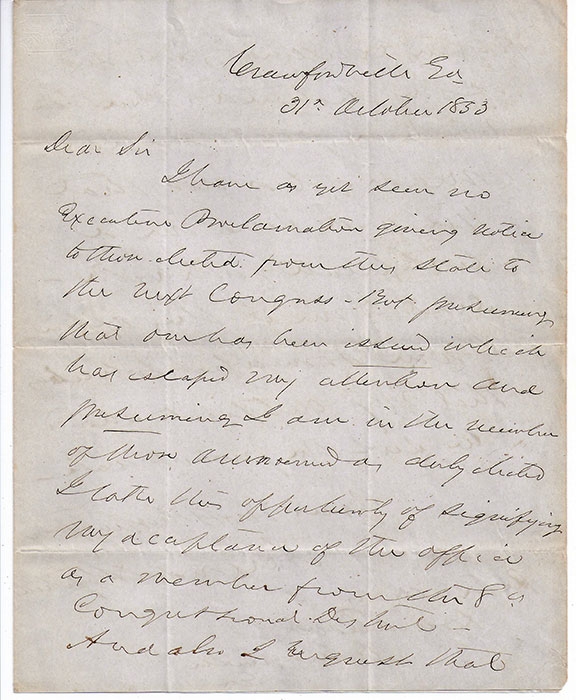 Crawfordville Ga
31st October 1853
Dear Sir
I have as yet seen no
Executive Proclamation giving notice
to those elected from this State to
the next Congress - But presuming
that one has been issued which
has escaped my attention and
presuming I am in the number
of those announced as duly elected
I take this opportunity of signifying
my acceptance of the office
as a member from the 8th
Congressional District -
And also I request that